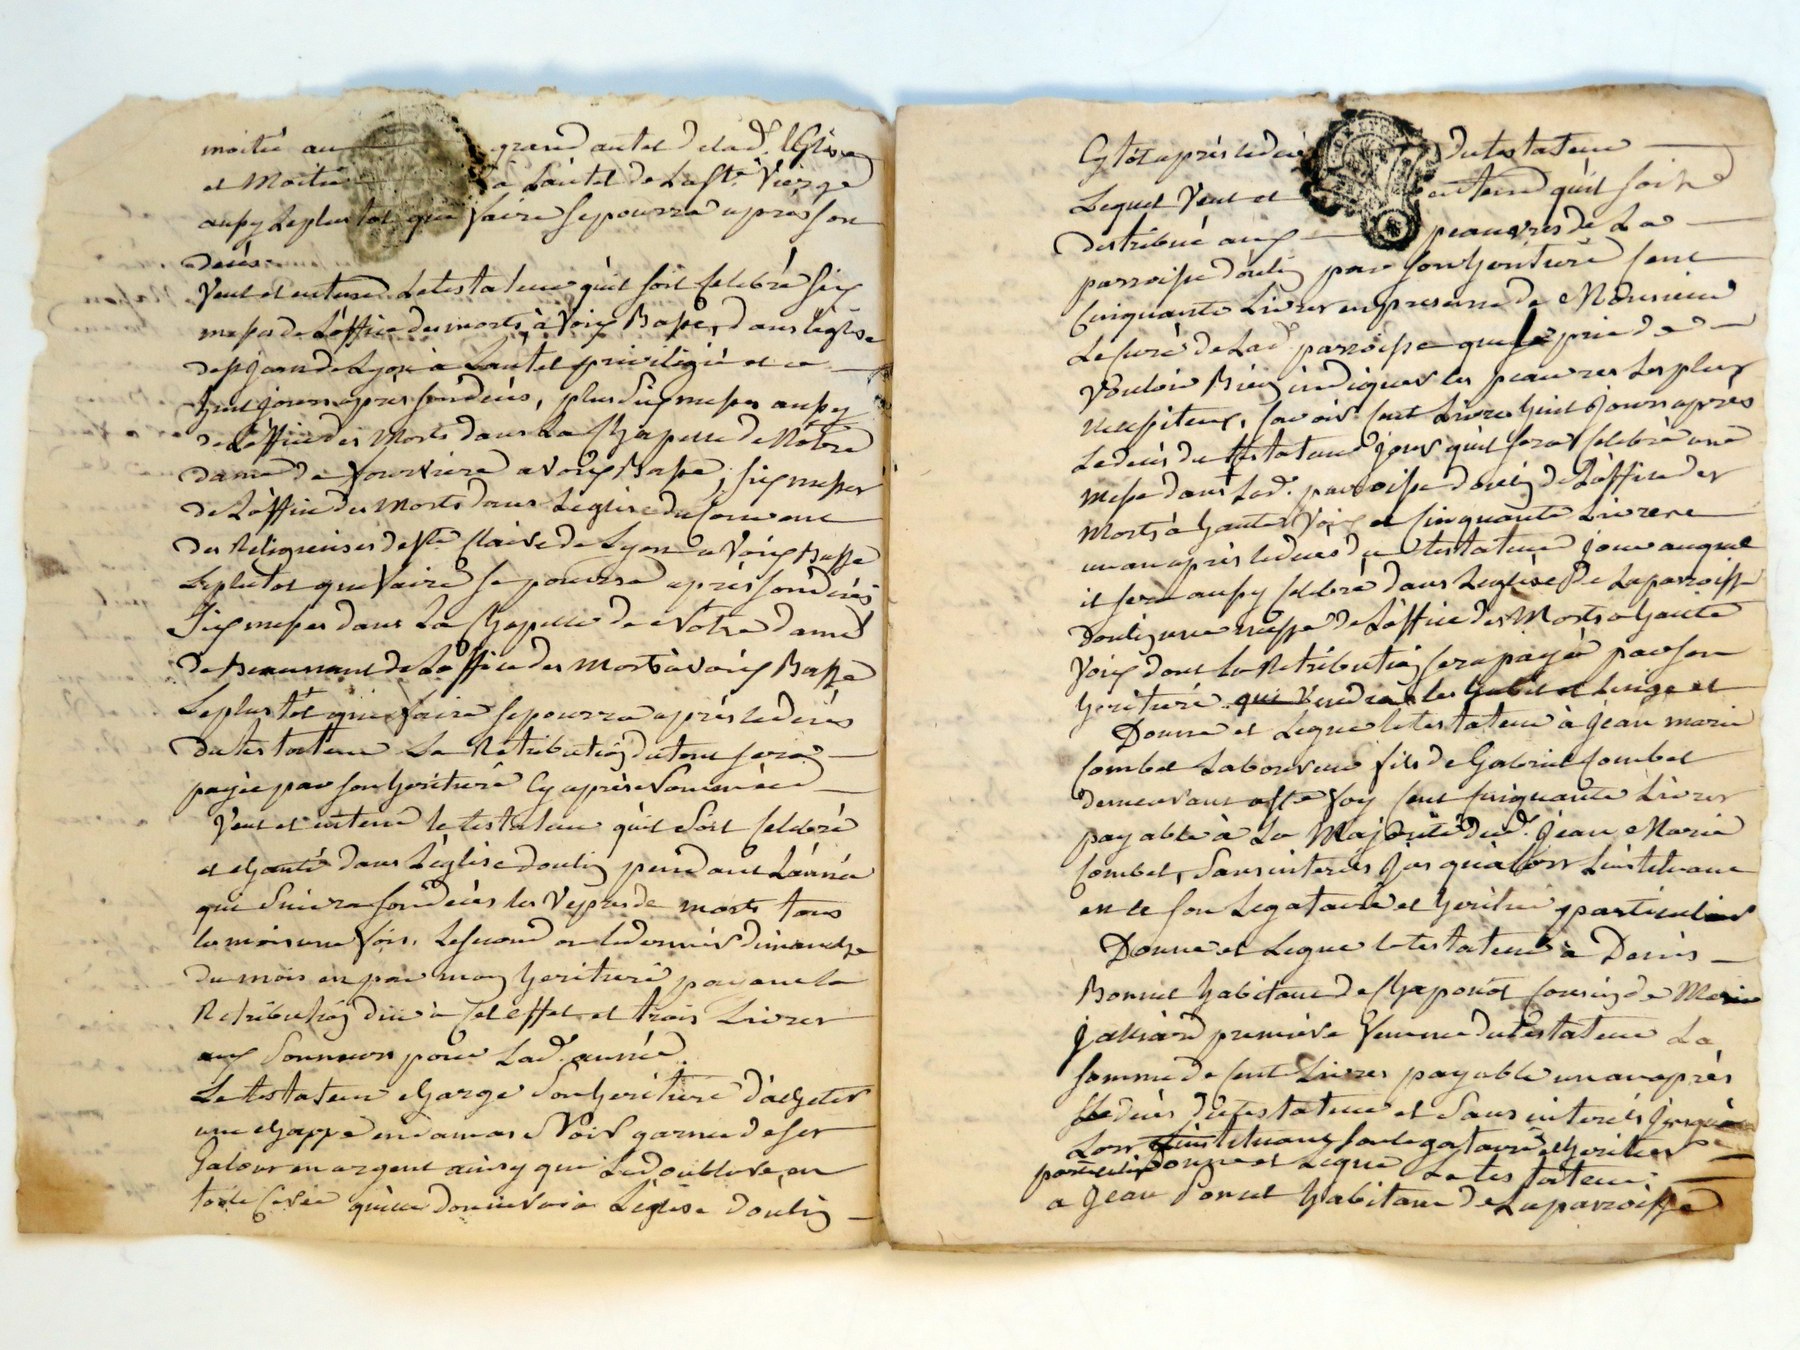 moitié au grand autel de lad. Eglise
et Moitié à Lautel de La Ste. Vierge
aussy Leplustot que faire se pourra apres son
decés.
Veut et entend Le testateur quil soit Celebré six
messes de L'office des morts à Voix Basse, dans l'église
de st Jean de Lyon à Lautel privilégié et ce
huit jours après son décés, plus dix messes aussy
de L'office des Morts dans La Chapelle de Nôtre
dame de fourviere a voix Basse, six messes
de L'office des Morts dans Leglise du Couvent
des Religieuses de Ste. Claire de Lyon a Voix Basse
Leplutot que faire se pourra après son décés
Six messes dans La Chapelle de Notre dame
de Beaunant de L'office des morts à voix Basse
Leplustôt que faire se pourra après le décés
du testateur La Retribution du tout sera
payée par son héritiere Cy après Nommée
Veut et entend le testateur quil Soit Celebré
et chanté dans L'église doulin pendant L'année
qui Suivra son décés les Vespres de morts tous
les mois une fois, Le second ou le dernier dimanche
du mois en par mon heritiere payant la
Retribution due à Cet effet et trois Livres
aux Sonneurs pour Lad. année.
Le testateur charge Son heritiere d'achepter
une chappe en damas Noir garnie de ses
Galons en argent ainsy que Le doublure en
toile Cirée qu'elle donnera à L'église doulin
Cy tôt après le décés du testateur
Lequel Veut et entend quil soit
distribué aux peauvres de La
parroisse doulin par son héritiere Cent
Cinquante Livres en presence de Monsieur
Le Curé de Lad. parroisse que je prie de
Vouloir Bien indiquer les peauvres les plus
necessiteux, Savoir Cent Livres huit jours apres
Le decés du testateur jour quil sera Celebré une
messe dans Lad. parroisse doulin de L'office des
Morts à hautes Voix et Cinquante Livres
un an après le decés du testateur jour auquel
il sera aussy Celebré dans Leglise de La parroisse
Doulin une messe de L'office des Morts a haute
Voix dont la Retribution sera payée par son
heritiere qui Vendra les habit et Linge et
Donne et Legue le testateur à Jean marie
Combet Laboureur fils de Gabriel Combet
demeurant a Ste foy Cent Cinquante Livres
payable à La Majorité dud. Jean Marie
Combet, Sans interest Jusqu'alors L'instituant
en ce son Legataire et heritier particulier
Donne et Legue le testateur à Denis
Bonnet habitant de Chaponot Cousin de Marie
Jalliard premiere femme du testateur La
somme de Cent Livres payable un an après
Le decés du testateur et Sans interest Jusqu'à
Lors L'instituant son legataire et heritier
particulier Donne et Legue Le testateur
a Jean Poncet habitant de La parroisse